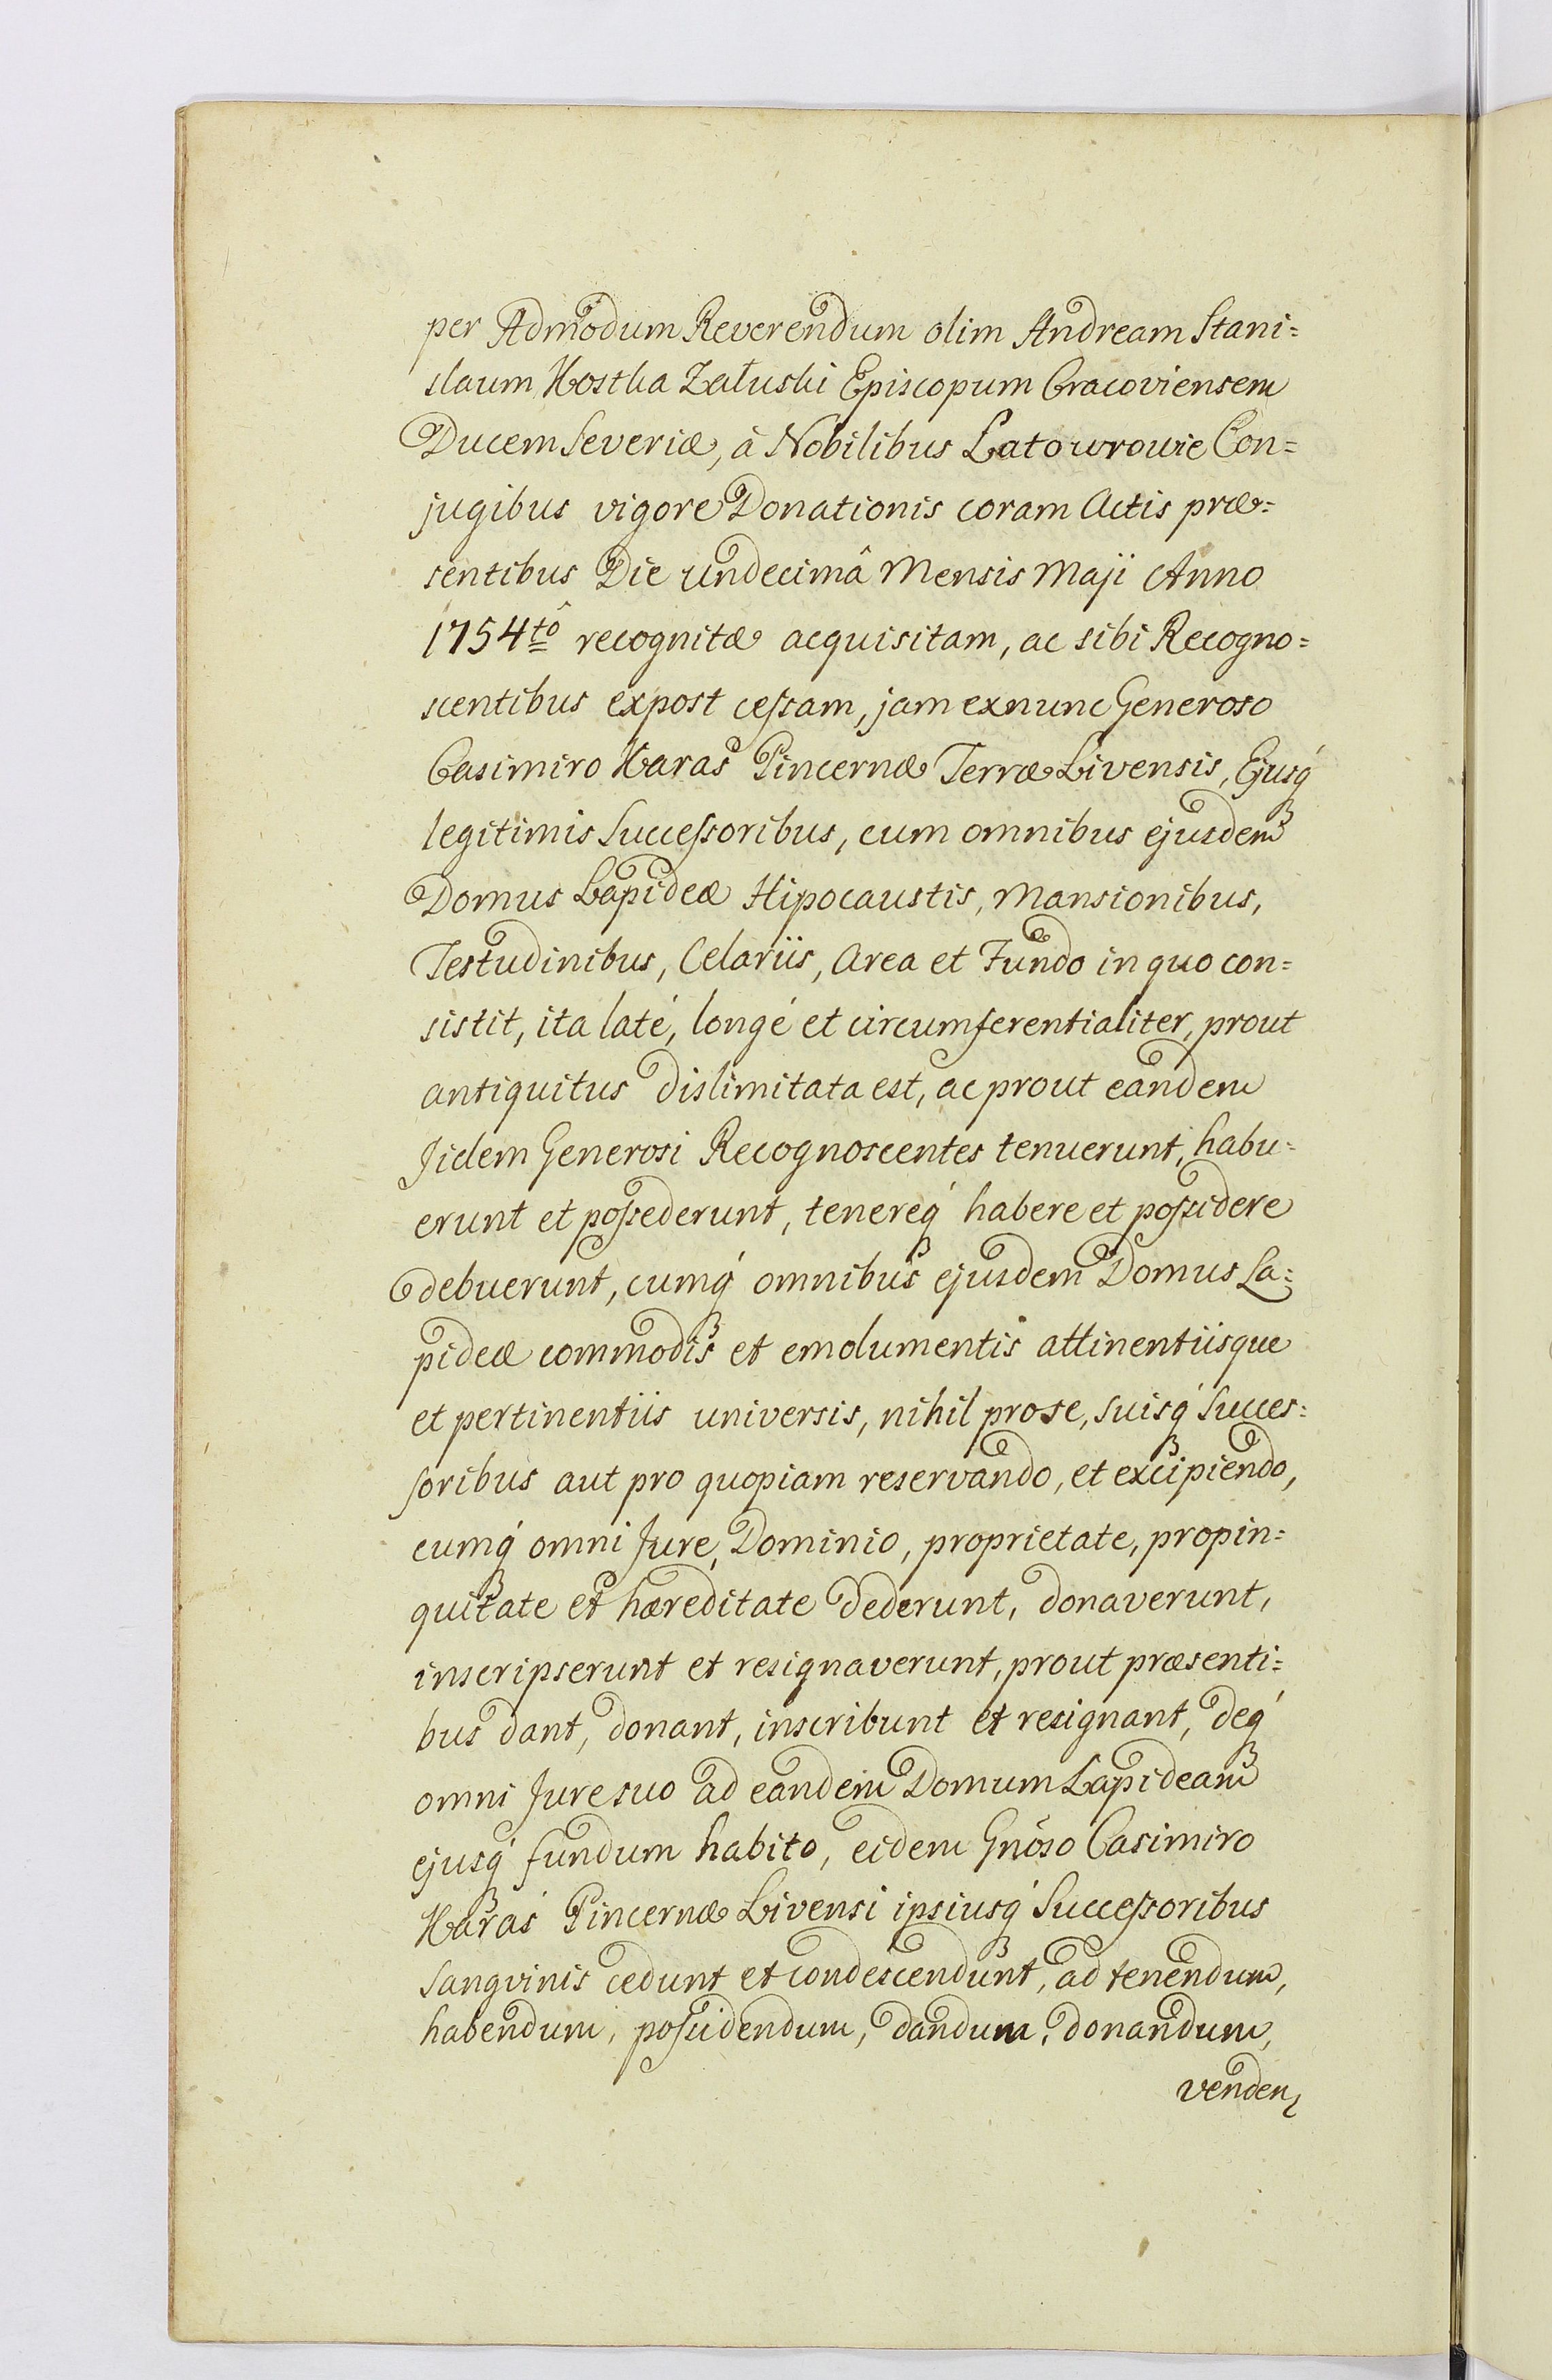 per Admodum Reverendum olim Andream Stani=
slaum Kostka Załuski Episcopum Cracoviensem
Ducem Severiæ, à Nobilibus Latowrowie Con=
jugibus vigore Donationis coram Actis præ=
sentibus Die undecimâ Mensis Maji Anno
1754tô recognitæ acquisitam, ac sibi Recogno=
scentibus expost cessam, jam exnunc Generoso
Casimiro Karas Pincernæ Terræ Livensis, Ejusq́
legitimis Successoribus, cum omnibus ejusdem
Domus Lapideæ Hipocaustis, Mansionibus,
Testudinibus, Celariis, Area et Fundo in quo con=
sistit, ita laté, longé et circumferentialiter, prout
antiquitus dislimitata est, ac prout eandem
Jidem Generosi Recognoscentes tenuerunt, habu=
erunt et possederunt, tenereq́ habere et possidere
debuerunt, cumq́ omnibus ejusdem Domus La=
pideæ commodis et emolumentis attinentiisque
et pertinentiis universis, nihil pro se, suisq́ Succes=
soribus aut pro quopiam reservando, et excipiendo,
cumq́ omni Jure, Dominio, proprietate, propin=
quitate et hæreditate dederunt, donaverunt,
inscripserunt et resignaverunt, prout præsenti=
bus dant, donant, inscribunt et resignant, deq́
omni Jure suo ad eandem Domum Lapideam
ejusq́ fundum habito, eidem Gnõso Casimiro
Karaś Pincernæ Livensi ipsiusq́ Successoribus
Sangvinis cedunt et condescendunt, ad tenendum,
habendum, possidendum, dandum, donandum,
venden